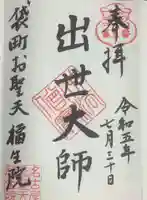 奉拝
令和五年
七月三十日
出世大師
袋町お聖天 福生院